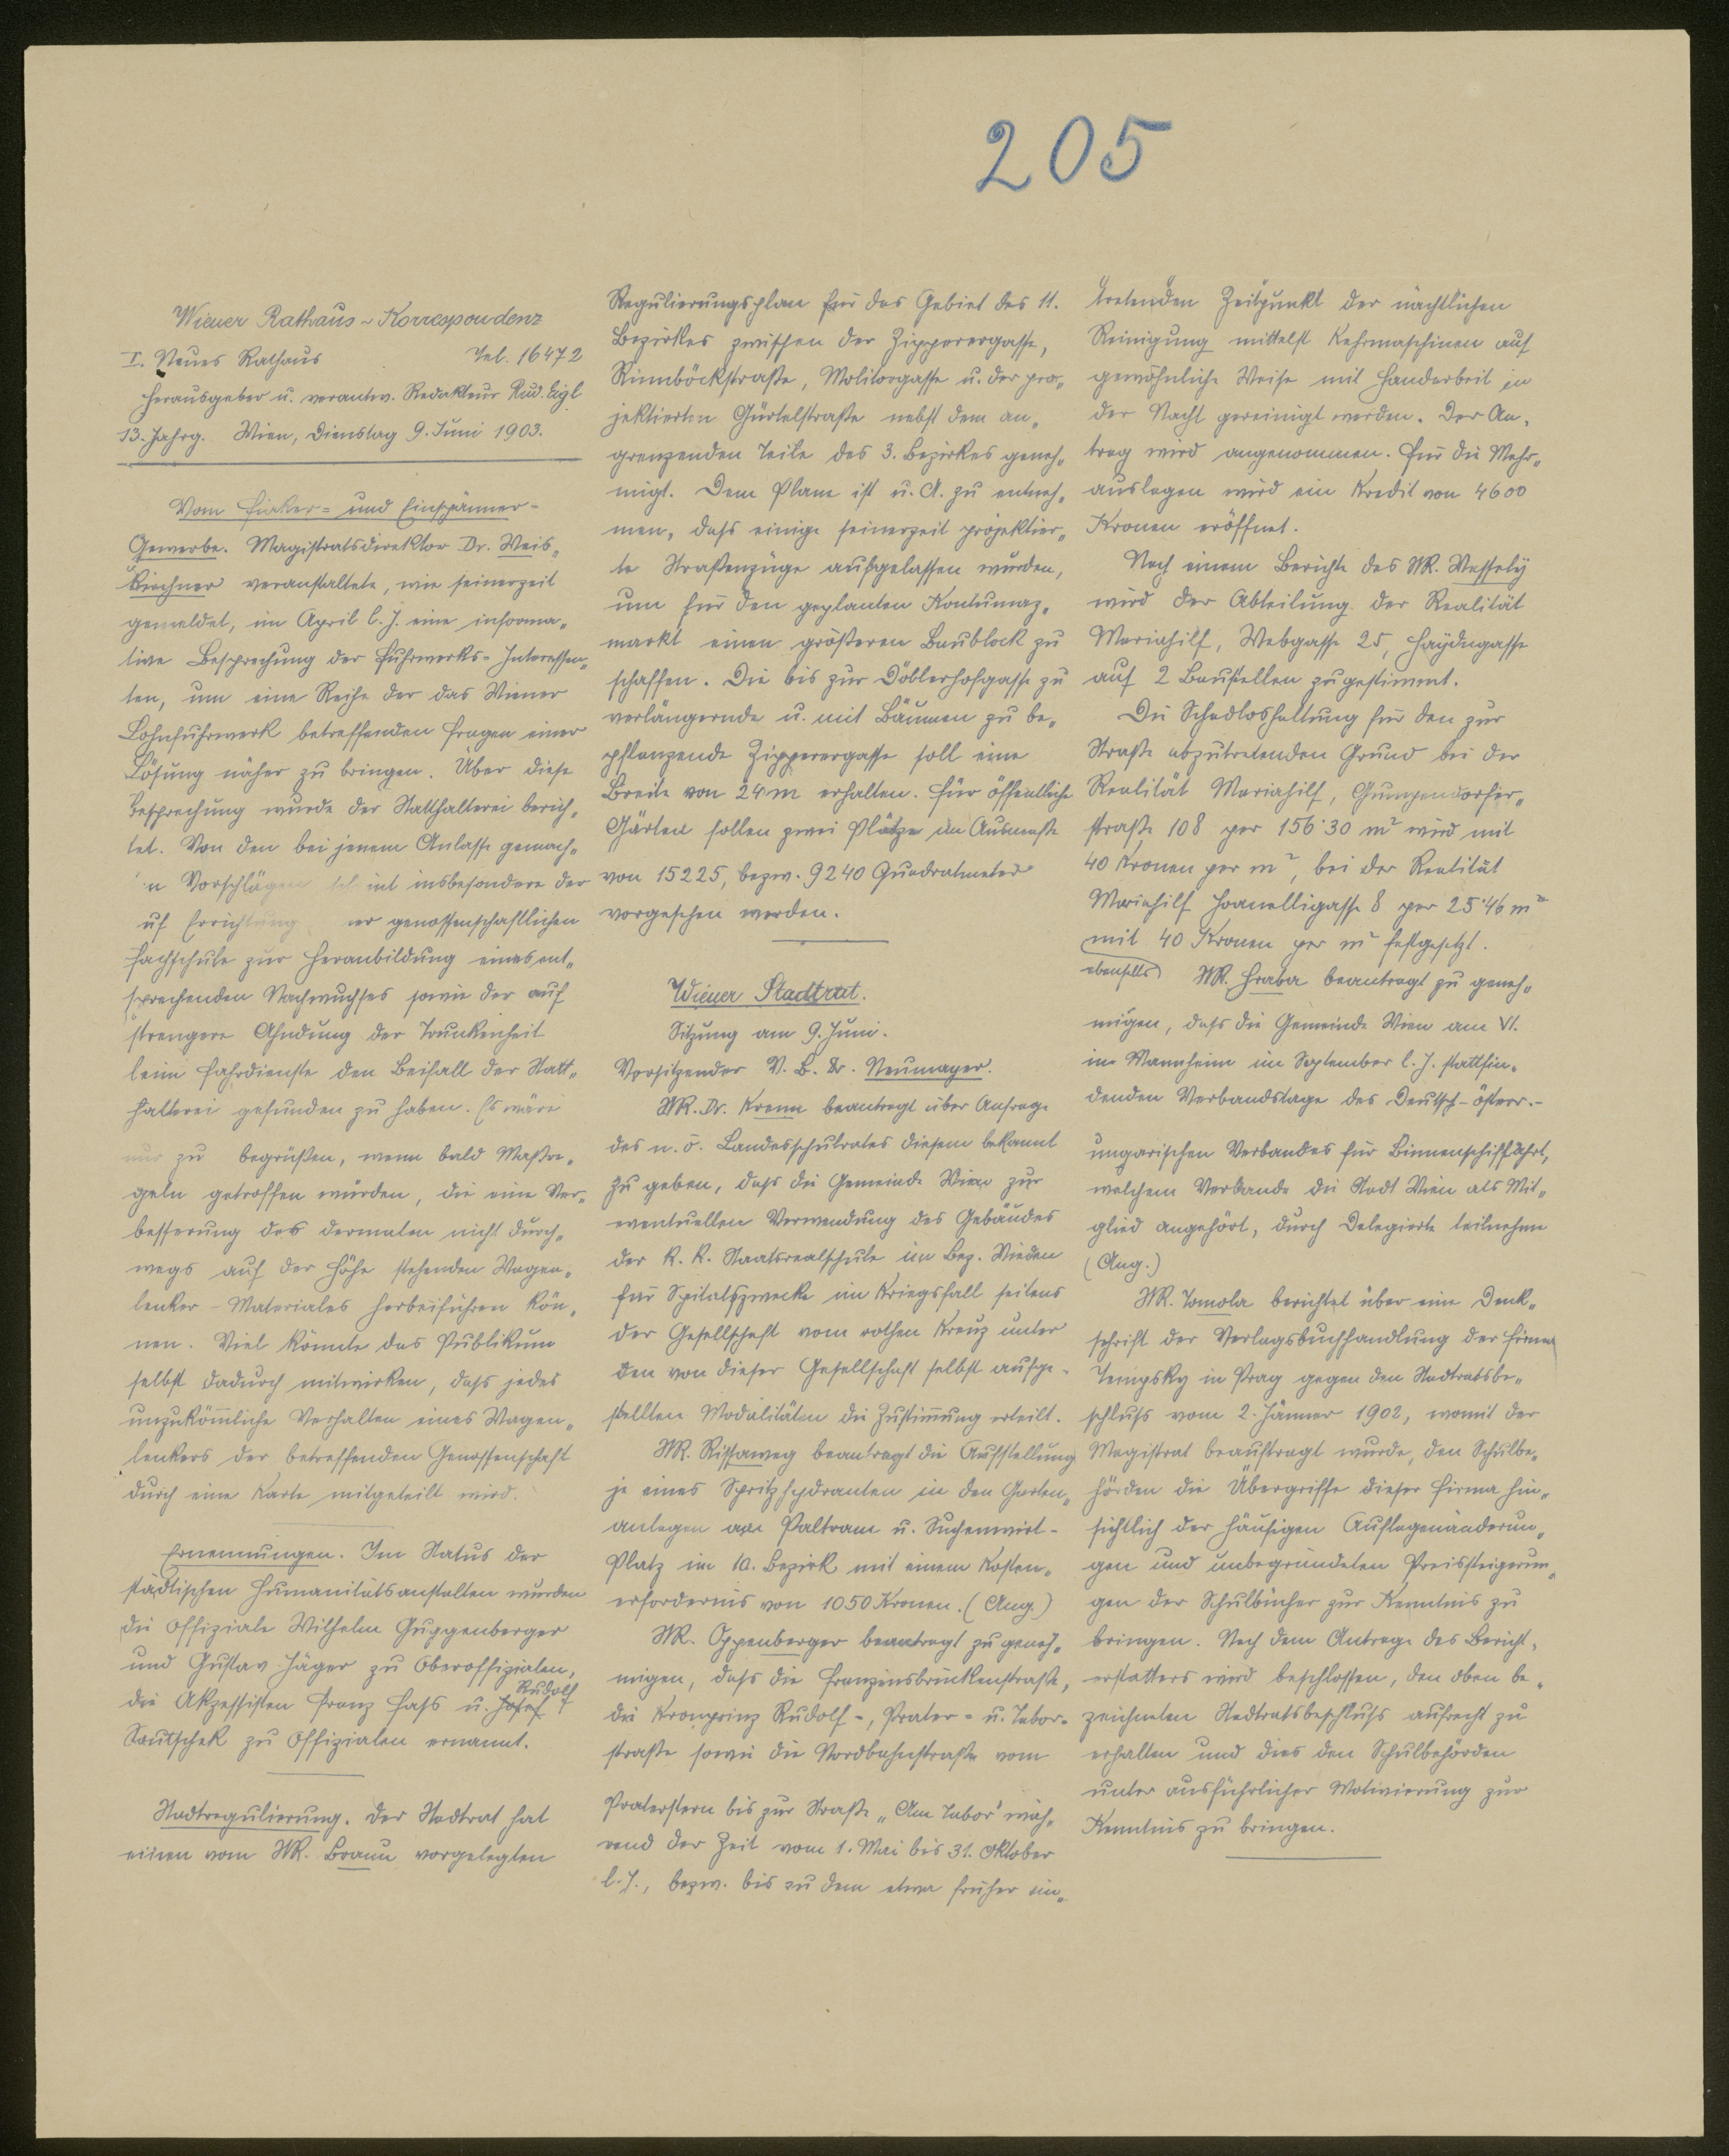 205
Wiener Rathaus-Korrespondenz
I. Neues Rathaus Tel. 16472
Herausgeber u. verantw. Redakteur Rud. Eigl
13. Jahrg. Wien, Dienstag 9. Juni 1903.
Vom Fiaker- und Einspänner-
Gewerbe. Magistratsdirektor Dr. Weis-
kirchner veranstaltete, wie seinerzeit
gemeldet, im April l. J. eine informa-
tive Besprechung der Fuhrwerks-Interessen-
ten, um eine Reihe der das Wiener
Lohnfuhrwerk betreffenden Fragen einer
Lösung näher zu bringen. Über diese
Besprechung wurde der Statthalterei berich-
tet. Von den bei jenem Anlasse gemach-
n Vorschlägen scheint insbesondere der
uf Errichtung er genossenschaftlichen
Fachschule zur Heranbildung eines ent-
sprechenden Nachwuchses sowie der auf
strengere Ahndung der Trunkenheit
beim Fahrdienste den Beifall der Statt-
halterei gefunden zu haben. Es wäre
nur zu begrüßen, wenn bald Maßre-
geln getroffen würden, die eine Ver-
besserung des dermalen nicht durch-
wegs auf der Höhe stehenden Wagen-
lenker-Materiales herbeiführen kön-
nen. Viel könnte das Publikum
selbst dadurch mitwirken, dass jedes
unzukömmliche Verhalten eines Wagen-
lenkers der betreffenden Genossenschaft
durch eine Karte mitgeteilt wird.
Ernennungen. Im Status der
städtischen Humanitätsanstalten wurden
die Offiziale Wilhelm Guggenberger
und Gustav Jäger zu Oberoffizialen,
Rudolf
die Akzessisten Franz Fass u. Josef
Sautschek zu Offizialen ernannt.
Stadtregulierung. Der Stadtrat hat
einen vom StR. Braun vorgelegten
Regulierungsplan für das Gebiet des 11.
Bezirkes zwischen der Zipperergasse,
Rinnböckstraße, Molitorgasse u. der pro-
jektierten Gürtelstraße nebst dem an-
grenzenden Teile des 3. Bezirkes geneh-
migt. Dem Plane ist u. A. zu entneh-
men, dass einige seinerzeit projektier-
te Straßenzüge aufgelassen wurden,
um für den geplanten Kontumaz-
markt einen größeren Baublock zu
schaffen. Die bis zur Döblerhofgasse zu
verlängernde u. mit Bäumen zu be-
pflanzende Zipperergasse soll eine
Breite von 24 m erhalten. Für öffentliche
Gärten sollen zwei Plätze im Ausmaße
von 15225, bezw. 9240 Quadratmeter
vorgesehen werden.
Wiener Stadtrat.
Sitzung am 9. Juni.
Vorsitzender V. B. Dr. Neumayer.
StR. Dr. Krenn beantragt über Anfrage
des n. ö. Landesschulrates diesem bekannt
zu geben, dass die Gemeinde Wien zur
eventuellen Verwendung des Gebäudes
der k. k. Staatsrealschule im Bez. Wieden
für Spitalszwecke im Kriegsfall seitens
der Gesellschaft vom rothen Kreuz unter
den von dieser Gesellschaft selbst aufge-
stellten Modalitäten die Zustimmung erteilt.
StR. Rissaweg beantragt die Aufstellung
je eines Spritzhydranten in den Garten-
anlagen am Paltram u. Suchenwirt-
Platz im 10. Bezirk mit einem Kosten-
erfordernis von 1050 Kronen. (Ang.)
StR. Oppenberger beantragt zu geneh-
migen, dass die Franzensbrückenstraße,
die Kronprinz Rudolf-, Prater- u. Tabor-
straße sowie die Nordbahnstraße vom
Praterstern bis zur Straße „Am Tabor" wäh-
rend der Zeit vom 1. Mai bis 31. Oktober
l. J., bezw. bis zu dem etwa früher ein-
tretenden Zeitpunkt der nächtlichen
Reinigung mittelst Kehrmaschinen auf
gewöhnliche Weise mit Handarbeit in
der Nacht gereinigt werden. Der An-
trag wird angenommen. Für die Mehr-
auslagen wird ein Kredit von 4600
Kronen eröffnet.
Nach einem Berichte des StR. Wessely
wird der Abteilung der Realität
Mariahilf, Webgasse 25, Haydngasse
auf 2 Baustellen zugestimmt.
Die Schadloshaltung für den zur
Straße abzutretenden Grund bei der
Realität Mariahilf, Gumpendorfer-
straße 108 per 156·30 m² wird mit
40 Kronen per m², bei der Realität
Mariahilf Hornelligasse 8 per 25·46 m²
mit 40 Kronen per m² festgesetzt.
ebenfalls StR. Hraba beantragt zu geneh-
migen, dass die Gemeinde Wien am VI.
in Mannheim im September l. J. stattfin-
denden Verbandstage des Deutsch-österr.-
ungarischen Verbandes für Binnenschiffahrt,
welchem Verbande die Stadt Wien als Mit-
glied angehört, durch Delegierte teilnehme
(Ang.)
StR. Tomola berichtet über eine Denk-
schrift der Verlagsbuchhandlung der Firma
Tempsky in Prag gegen den Stadtratsbe-
schluss vom 2. Jänner 1902, womit der
Magistrat beauftragt wurde, den Schulbe-
hörden die Übergriffe dieser Firma hin-
sichtlich der häufigen Auflagenänderun-
gen und unbegründeten Preissteigerun-
gen der Schulbücher zur Kenntnis zu
bringen. Nach dem Antrage des Bericht-
erstatters wird beschlossen, den oben be-
zeichneten Stadtratsbeschluss aufrecht zu
erhalten und dies den Schulbehörden
unter ausführlicher Motivierung zur
Kenntnis zu bringen.